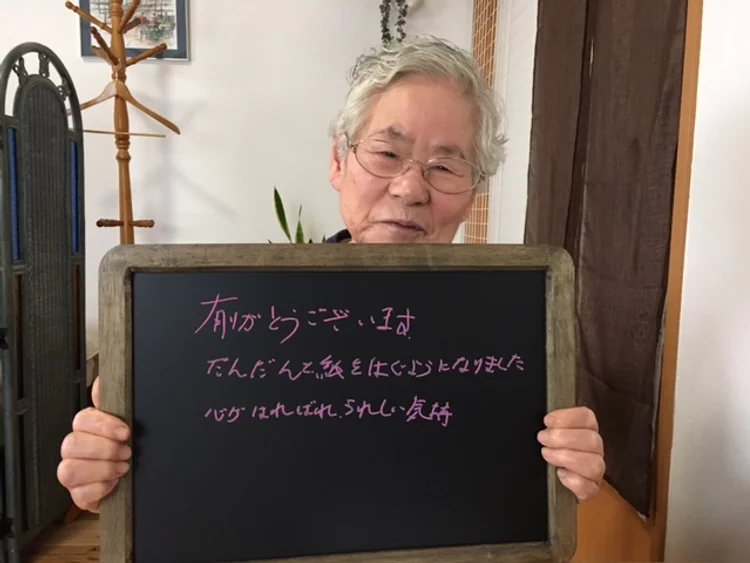 有がとうございます.
だんだんで紙をはぐようになりました
心がはればれ、うれしい気持